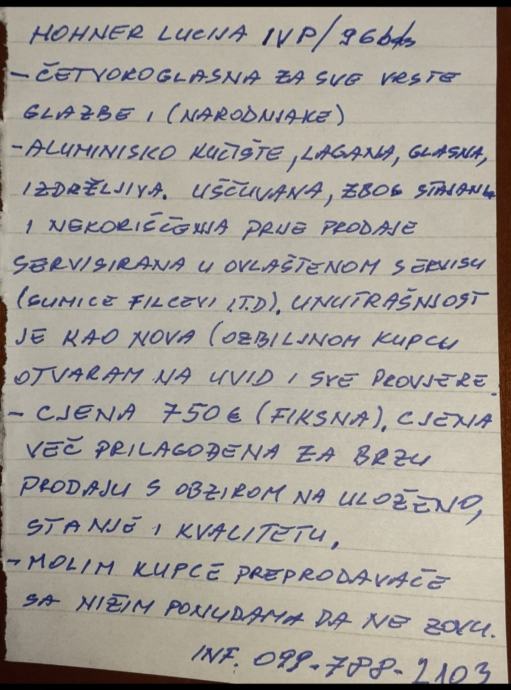 HOHNER LUCIJA IVP/96bas
- ČETVOROGLASNA ZA SVE VRSTE
GLAZBE I (NARODNJAKE)
- ALUMINISKO KUČIŠTE, LAGANA, GLASNA,
IZDRŽLJIVA. UŠČUVANA, ZBOG STAJANA
I NEKORIŠČENJA PRIJE PRODAJE
SERVISIRANA U OVLAŠTENOM SERVISU
(GUMICE FILCEVI I.T.D). UNUTRAŠNJOST
JE KAO NOVA (OZBILJNOM KUPCU
OTVARAM NA UVID I SVE PROVJERE.
- CJENA 750€ (FIKSNA). CJENA
VEČ PRILAGOĐENA ZA BRZU
PRODAJU S OBZIROM NA ULOŽENO,
STANJE I KVALITETU.
- MOLIM KUPCE PREPRODAVAČE
SA NIŽIM PONUDAMA DA NE ZOVU.
INF. 099-788-2103